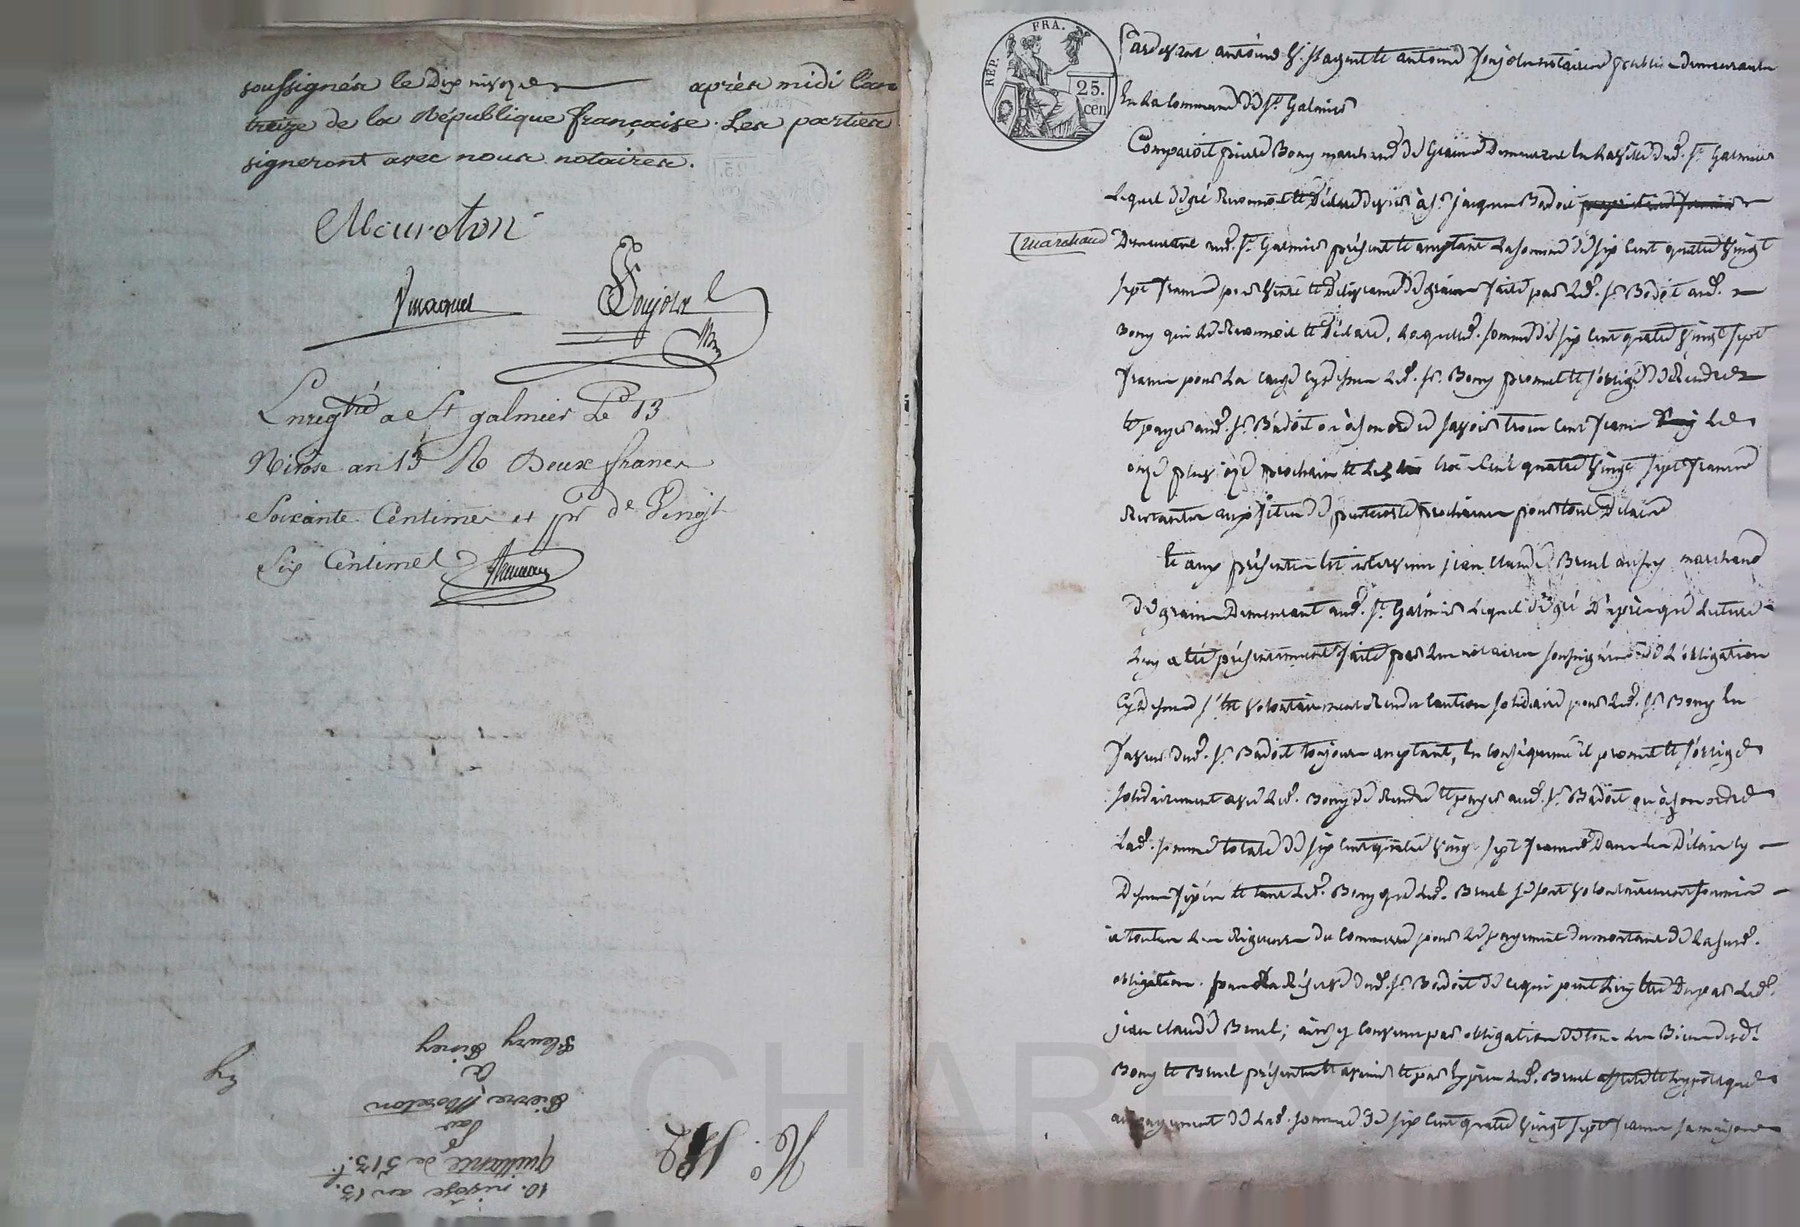 soussignés le Dix nivose après midi l'an
treize de la République française. Les parties
signeront avec nous notaires.
Moureton
Enregtré a St galmier Le 13
Nivose an 13 R Deux francs
Soixante Centimes et pr de Vingt
Six Centimes
10. nivose an 13.
quittance de 513.f
Par
Pierre Moreton
à
Fleury
N°. 182
REP. FRA.
25. cen
Pardevant antoine notaire public demeurant
En la Commune de St. Galmier
Comparoit pierre Bony marchand de Graine Demeurant En la ville dud. St. Galmier
Lequel de gré Reconnoit et Déclare devoir à Sr. jacques Badoit
marchand
Demeurant aud. St. Galmier présent et acceptant La somme de six Cent quatre vingt
sept francs pour vente et Délivrance de graines faite par Led. Sr. Badoit aud.
Bony qui Le Reconnoit et Déclare, Laquelle somme de six Cent quatre vingt sept
francs pour La cause cydessus Led. Sr. Bony promet et s'oblige de Rendre
et payer aud. Sr. Badoit ou à son ordre savoir trois Cent francs Le
onze pluviose prochain et Les trois Cent quatre vingt sept francs
Restantes aux fêtes de pentecoste prochaines pour tout Délai
et aux présentes Est intervenu jean claude Brunel aussy marchand
de graine Demeurant aud. St. Galmier Lequel de gré D'après que Lecture
Luy a été présentement faite par Les notaires soussignés de L'obligation
Cydessus s'est volontairement Rendu Caution solidaire pour Led. Sr. Bony En
faveur dud. Sr. Badoit toujours acceptant, En conséquence il promet et s'oblige
solidairement avec Led. Bony de Rendre et payer aud. Sr. Badoit ou à son ordre
Lad. somme totale de six Cent quatre vingt sept francs Dans Les Délais cy
Dessus fixés et tant Led. Bony que Led. Brunel se sont volontairement soumis
à toutes Les Rigueurs du Commerce pour Le payement du montant de La sud.
obligation. Sr. Badoit de ce qui peut Luy être Du par Led.
jean claude Brunel; ainsy Convenu par obligation de tous Les Biens desd.
Bony et Brunel présents et avenir et par Led. Brunel
au payement de Lad. somme de six Cent quatre vingt sept francs sa maison
CHARLY